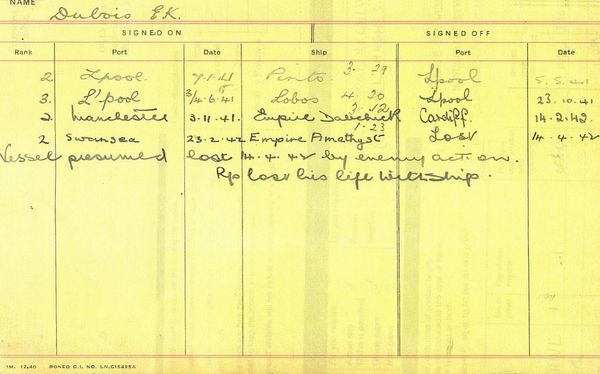 NAME Dubois E.K.
SIGNED ON SIGNED OFF
Rank Port Date Ship Port Date
2 L'pool. 7.1.41 Pinto 3.29 L'pool 5.5.41
3. L'pool 3/4.6.41 Lobos 4.20 L'pool 23.10.41
2 Manchester 3.11.41. Empire 3.12 Cardiff. 14.2.42.
2 Swansea 23.2.42 Empire Amethyst 1.23 Lost 14.4.42
Vessel presumed lost 14.4.42 by enemy action.
R/o lost his life with ship.
1M. 12.40 RONEO C.I. NO. LN.C15495A